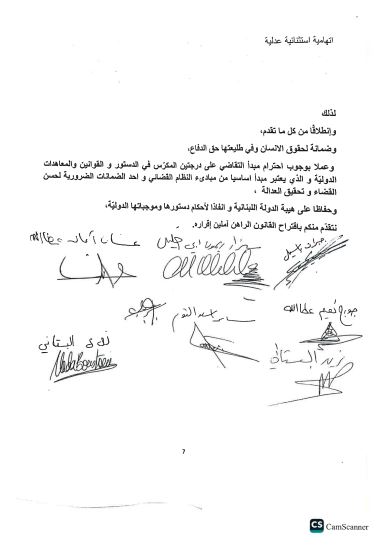 اتهامية استثنائية عدلية
لذلك
وإنطلاقًا من كل ما تقدم،
وضمانة لحقوق الانسان وفي طليعتها حق الدفاع،
وعملا بوجوب احترام مبدأ التقاضي على درجتين المكرّس في الدستور و القوانين والمعاهدات
الدوليّة و الذي يعتبر مبدأ اساسيا من مبادىء النظام القضائي و احد الضمانات الضرورية لحسن
القضاء و تحقيق العدالة ،
وحفاظا على هيبة الدولة اللبنانية و انفاذا لأحكام دستورها وموجباتها الدوليّة،
نتقدّم منكم بإقتراح القانون الراهن آملين إقراره.
غسان عطاالله
نزار
جورج نعيم عطاالله
سامر التوم
ندى البستاني
Nada Boustani
7
CS CamScanner